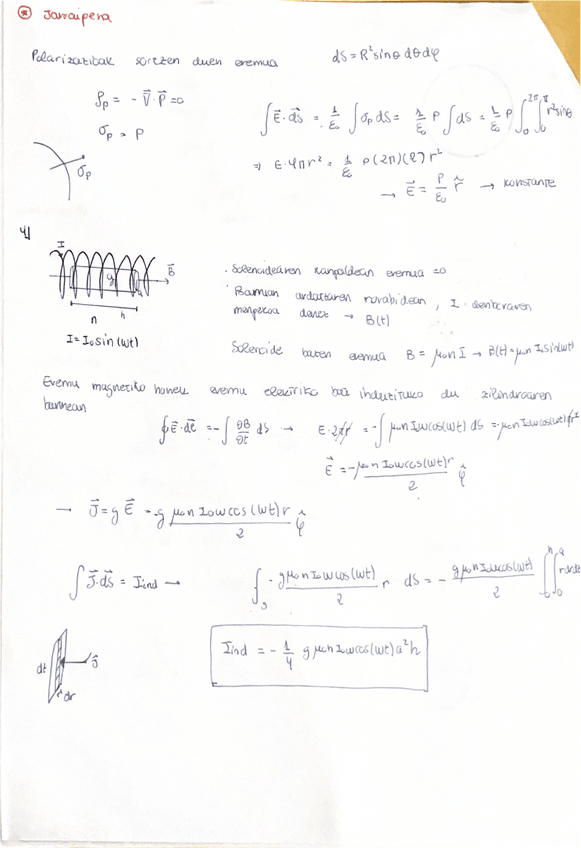 ⊛ Jarraipena
Polarizazioak sortzen duen eremua dS = R² sinθ dθ dφ
ρₚ = - ∇⃗·P⃗ = 0
∫ E⃗·dS⃗ = 1/ε₀ ∫ σₚ dS = 1/ε₀ P ∫ dS = 1/ε₀ P ∫₀^2π ∫₀^π r² sinθ
σₚ = P
σₚ
⇒ E·4πr² = 1/ε₀ P (2π)(2) r²
→ E⃗ = P/ε₀ r̂ → konstante
4)
I
g
B⃗
n
h
I = I₀ sin(ωt)
· Solenoidearen kanpoaldean eremua = 0
· Barruan ardatzaren norabidean, I denboraren
menpekoa denez → B(t)
Solenoide baten eremua B = μ₀ n I → B(t) = μ₀ n I₀ sin(ωt)
Eremu magnetiko honek eremu elektriko bat induzituko du zilindroaren
barnean
∮ E⃗·dl⃗ = - ∫ ∂B/∂t dS → E·2πr = - ∫ μ₀ n I₀ ω cos(ωt) dS = - μ₀ n I₀ ω cos(ωt) π r²
E⃗ = - μ₀ n I₀ ω cos(ωt) r / 2 φ̂
→ J⃗ = g E⃗ = - g μ₀ n I₀ ω cos(ωt) r / 2 φ̂
∫ J⃗·dS⃗ = Iind → ∫ₛ - g μ₀ n I₀ ω cos(ωt) / 2 r dS = - g μ₀ n I₀ ω cos(ωt) / 2 ∫₀^h ∫₀^a r dr dt
dt
J⃗
dr
Iind = - 1/4 g μ₀ n I₀ ω cos(ωt) a² h